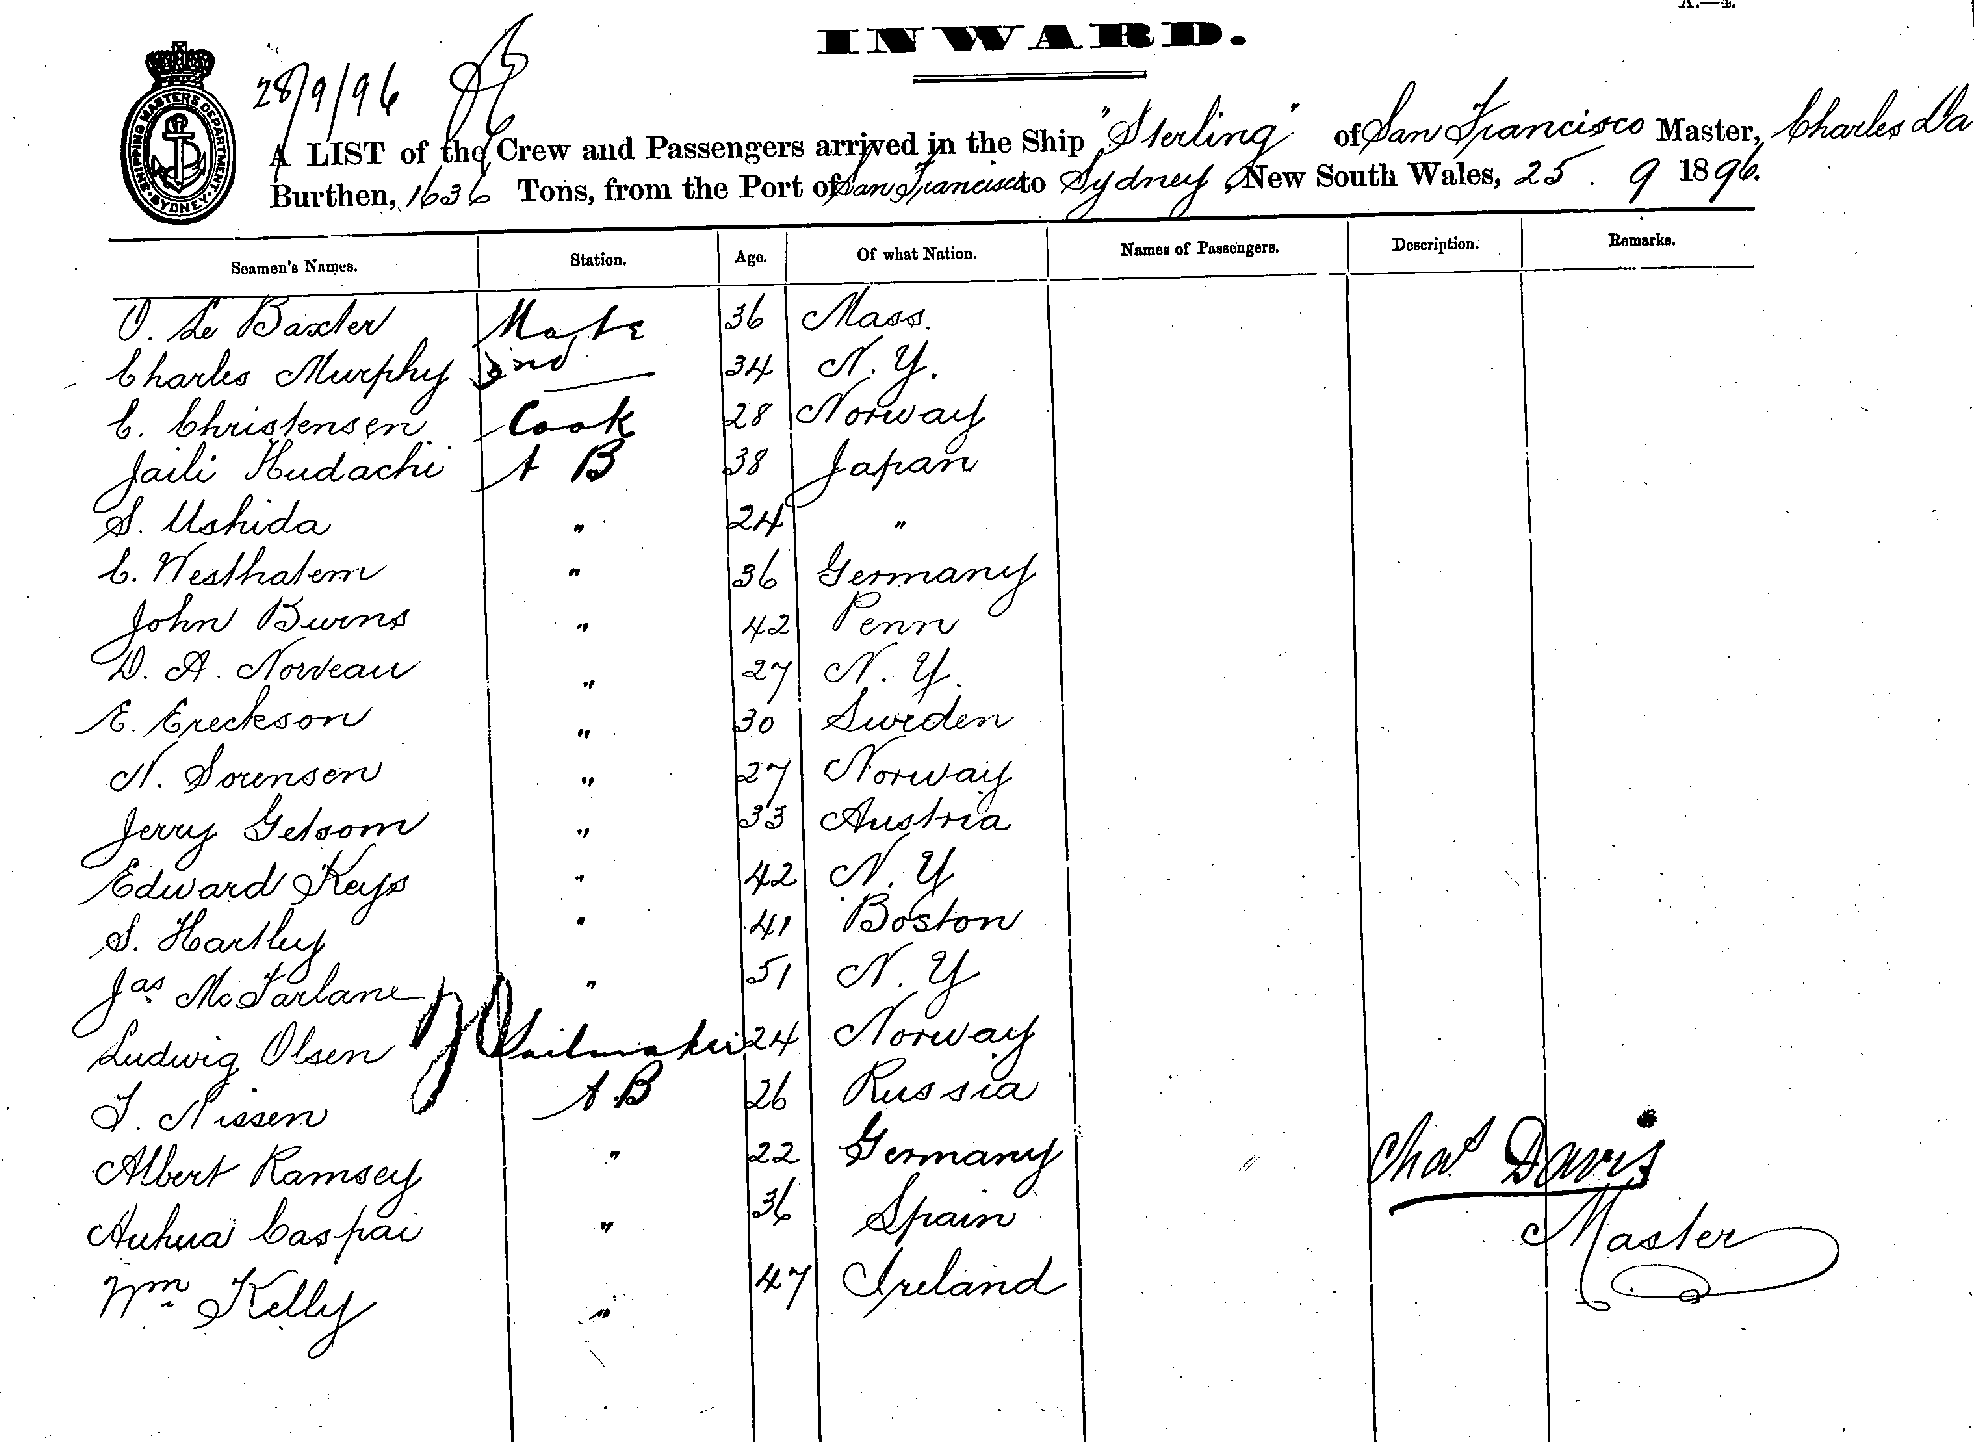 A.—4.
INWARD.
28/9/96
SHIPPING MASTERS DEPARTMENT SYDNEY
A LIST of the Crew and Passengers arrived in the Ship "Sterling" of San Francisco Master, Charles Da
Burthen, 1636 Tons, from the Port of San Francisco to Sydney, New South Wales, 25 . 9 1896.
Seamen's Names. Station. Age. Of what Nation. Names of Passengers. Description. Remarks.
O. Le Baxter Mate 36 Mass.
Charles Murphy 2nd — 34 N. Y.
C. Christensen Cook 28 Norway
Jaili Hudachi A B 38 Japan
S. Ushida " 24 "
C. Westhatem " 36 Germany
John Burns " 42 Penn
D. A. Norveau " 27 N. Y.
E. Ereckson " 30 Sweden
N. Sorensen " 27 Norway
Jerry Getsom " 33 Austria
Edward Keys " 42 N. Y
S. Hartley " 41 Boston
Jas McFarlane " 51 N. Y
Ludwig Olsen Sailmaker 24 Norway
Nissen A B 26 Russia
Albert Ramsey " 22 Germany
Caspai " 36 Spain
Wm Kelly " 47 Ireland
Chas Davis
Master